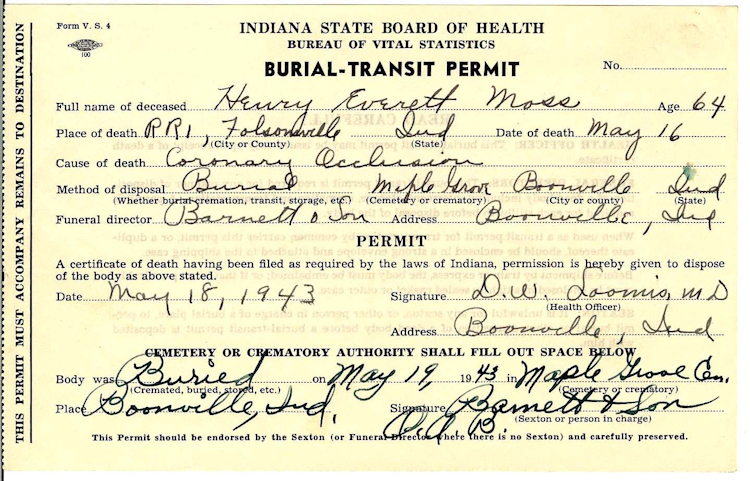 Form V. S. 4
100
INDIANA STATE BOARD OF HEALTH
BUREAU OF VITAL STATISTICS
BURIAL-TRANSIT PERMIT
No.
Full name of deceased Henry Everett Moss Age 64
Place of death RR1, Folsomville Ind Date of death May 16
(City or County) (State)
Cause of death Coronary Occlusion
Method of disposal Burial Maple Grove Boonville Ind
(Whether burial, cremation, transit, storage, etc.) (Cemetery or crematory) (City or county) (State)
Funeral director Barnett & Son Address Boonville, Ind
PERMIT
A certificate of death having been filed as required by the laws of Indiana, permission is hereby given to dispose
of the body as above stated.
Date May 18, 1943 Signature D.W. Loomis, MD
(Health Officer)
Address Boonville, Ind
CEMETERY OR CREMATORY AUTHORITY SHALL FILL OUT SPACE BELOW
Body was Buried on May 19, 1943 in Maple Grove Cem.
(Cremated, buried, stored, etc.) (Cemetery or crematory)
Place Boonville, Ind. Signature Barnett & Son
(Sexton or person in charge)
This Permit should be endorsed by the Sexton (or Funeral Director where there is no Sexton) and carefully preserved.
THIS PERMIT MUST ACCOMPANY REMAINS TO DESTINATION